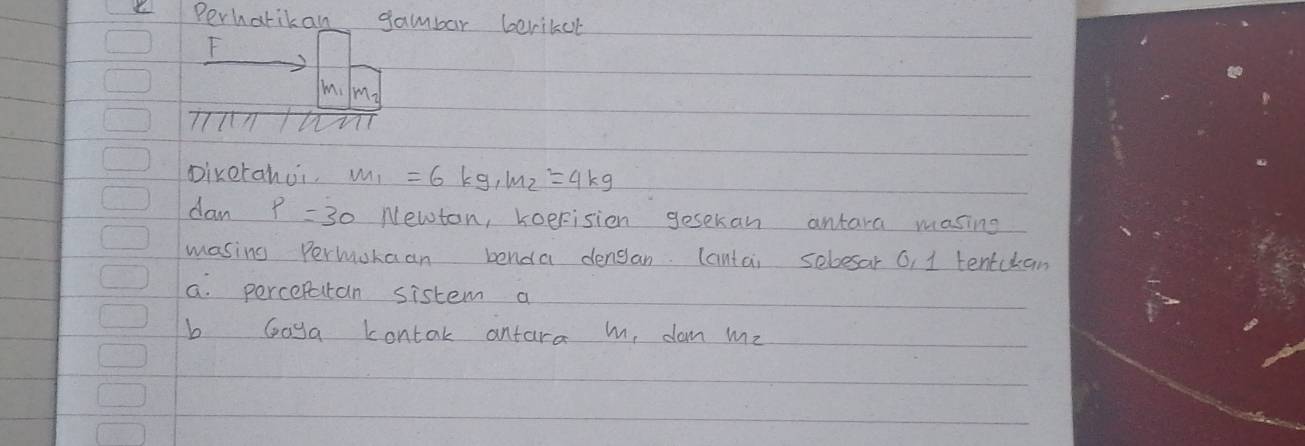 Perhatikan gambar berikut
F
m1 m2
Diketahui. m1 = 6 kg, m2 = 4kg
dan P = 30 Newton, koefisien gesekan antara masing
masing Permukaan benda dengan lantai sebesar 0,1 tentukan
a. percepatan sistem a
b Gaya kontak antara m1 dan m2